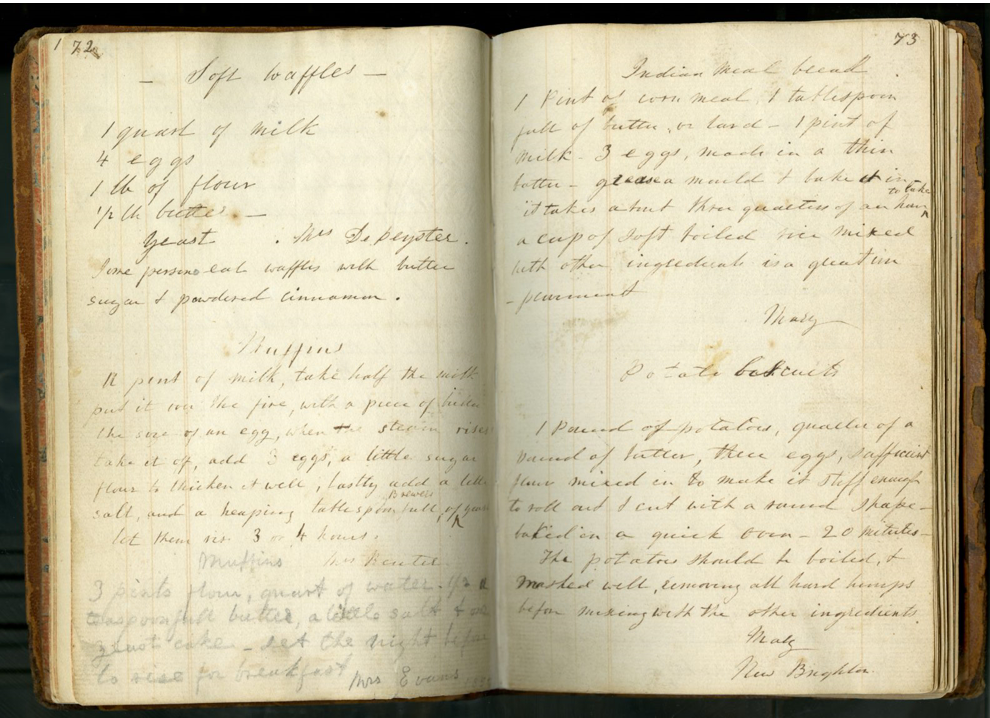 1 72
— Soft waffles —
1 quart of milk
4 eggs
1 lb of flour
1/2 lb butter —
yeast . Mrs De peyster.
Some persons eat waffles with butter
sugar & powdered cinnamon.
Muffins
A pint of milk, take half the milk
put it over the fire, with a piece of butter
the size of an egg, when the steam rises
take it of, add 3 eggs, a little sugar
flour to thicken it well, lastly add a little
salt, and a heaping tablespoonfull, of Brewers
let them ris 3 or 4 hours.
Muffins Mrs
3 pints flour, quart of water. 1/2 a
teaspoonfull butter, a little salt & one
yeast cake — set the night before
to rise for breakfast
Mrs Evans
73
Indian Meal bread.
1 Pint of corn meal 1 tablespoon
full of butter, or lard — 1 pint of
milk - 3 eggs, made in a thin
batter — grease a mould & bake it in
it takes about three quarters of an hour to bake
a cup of soft boiled rice mixed
with other ingredients is a great im
-provement
Mary
Potato biscuits
1 Pound of potatoes, quarter of a
pound of butter, three eggs, sufficient
flour mixed in to make it stiff enough
to roll out & cut with a round shape —
baked in a quick oven — 20 minutes —
The potatoes should be boiled, &
mashed well, removing all hard lumps
before mixing with the other ingredients.
Mary
New Brighton